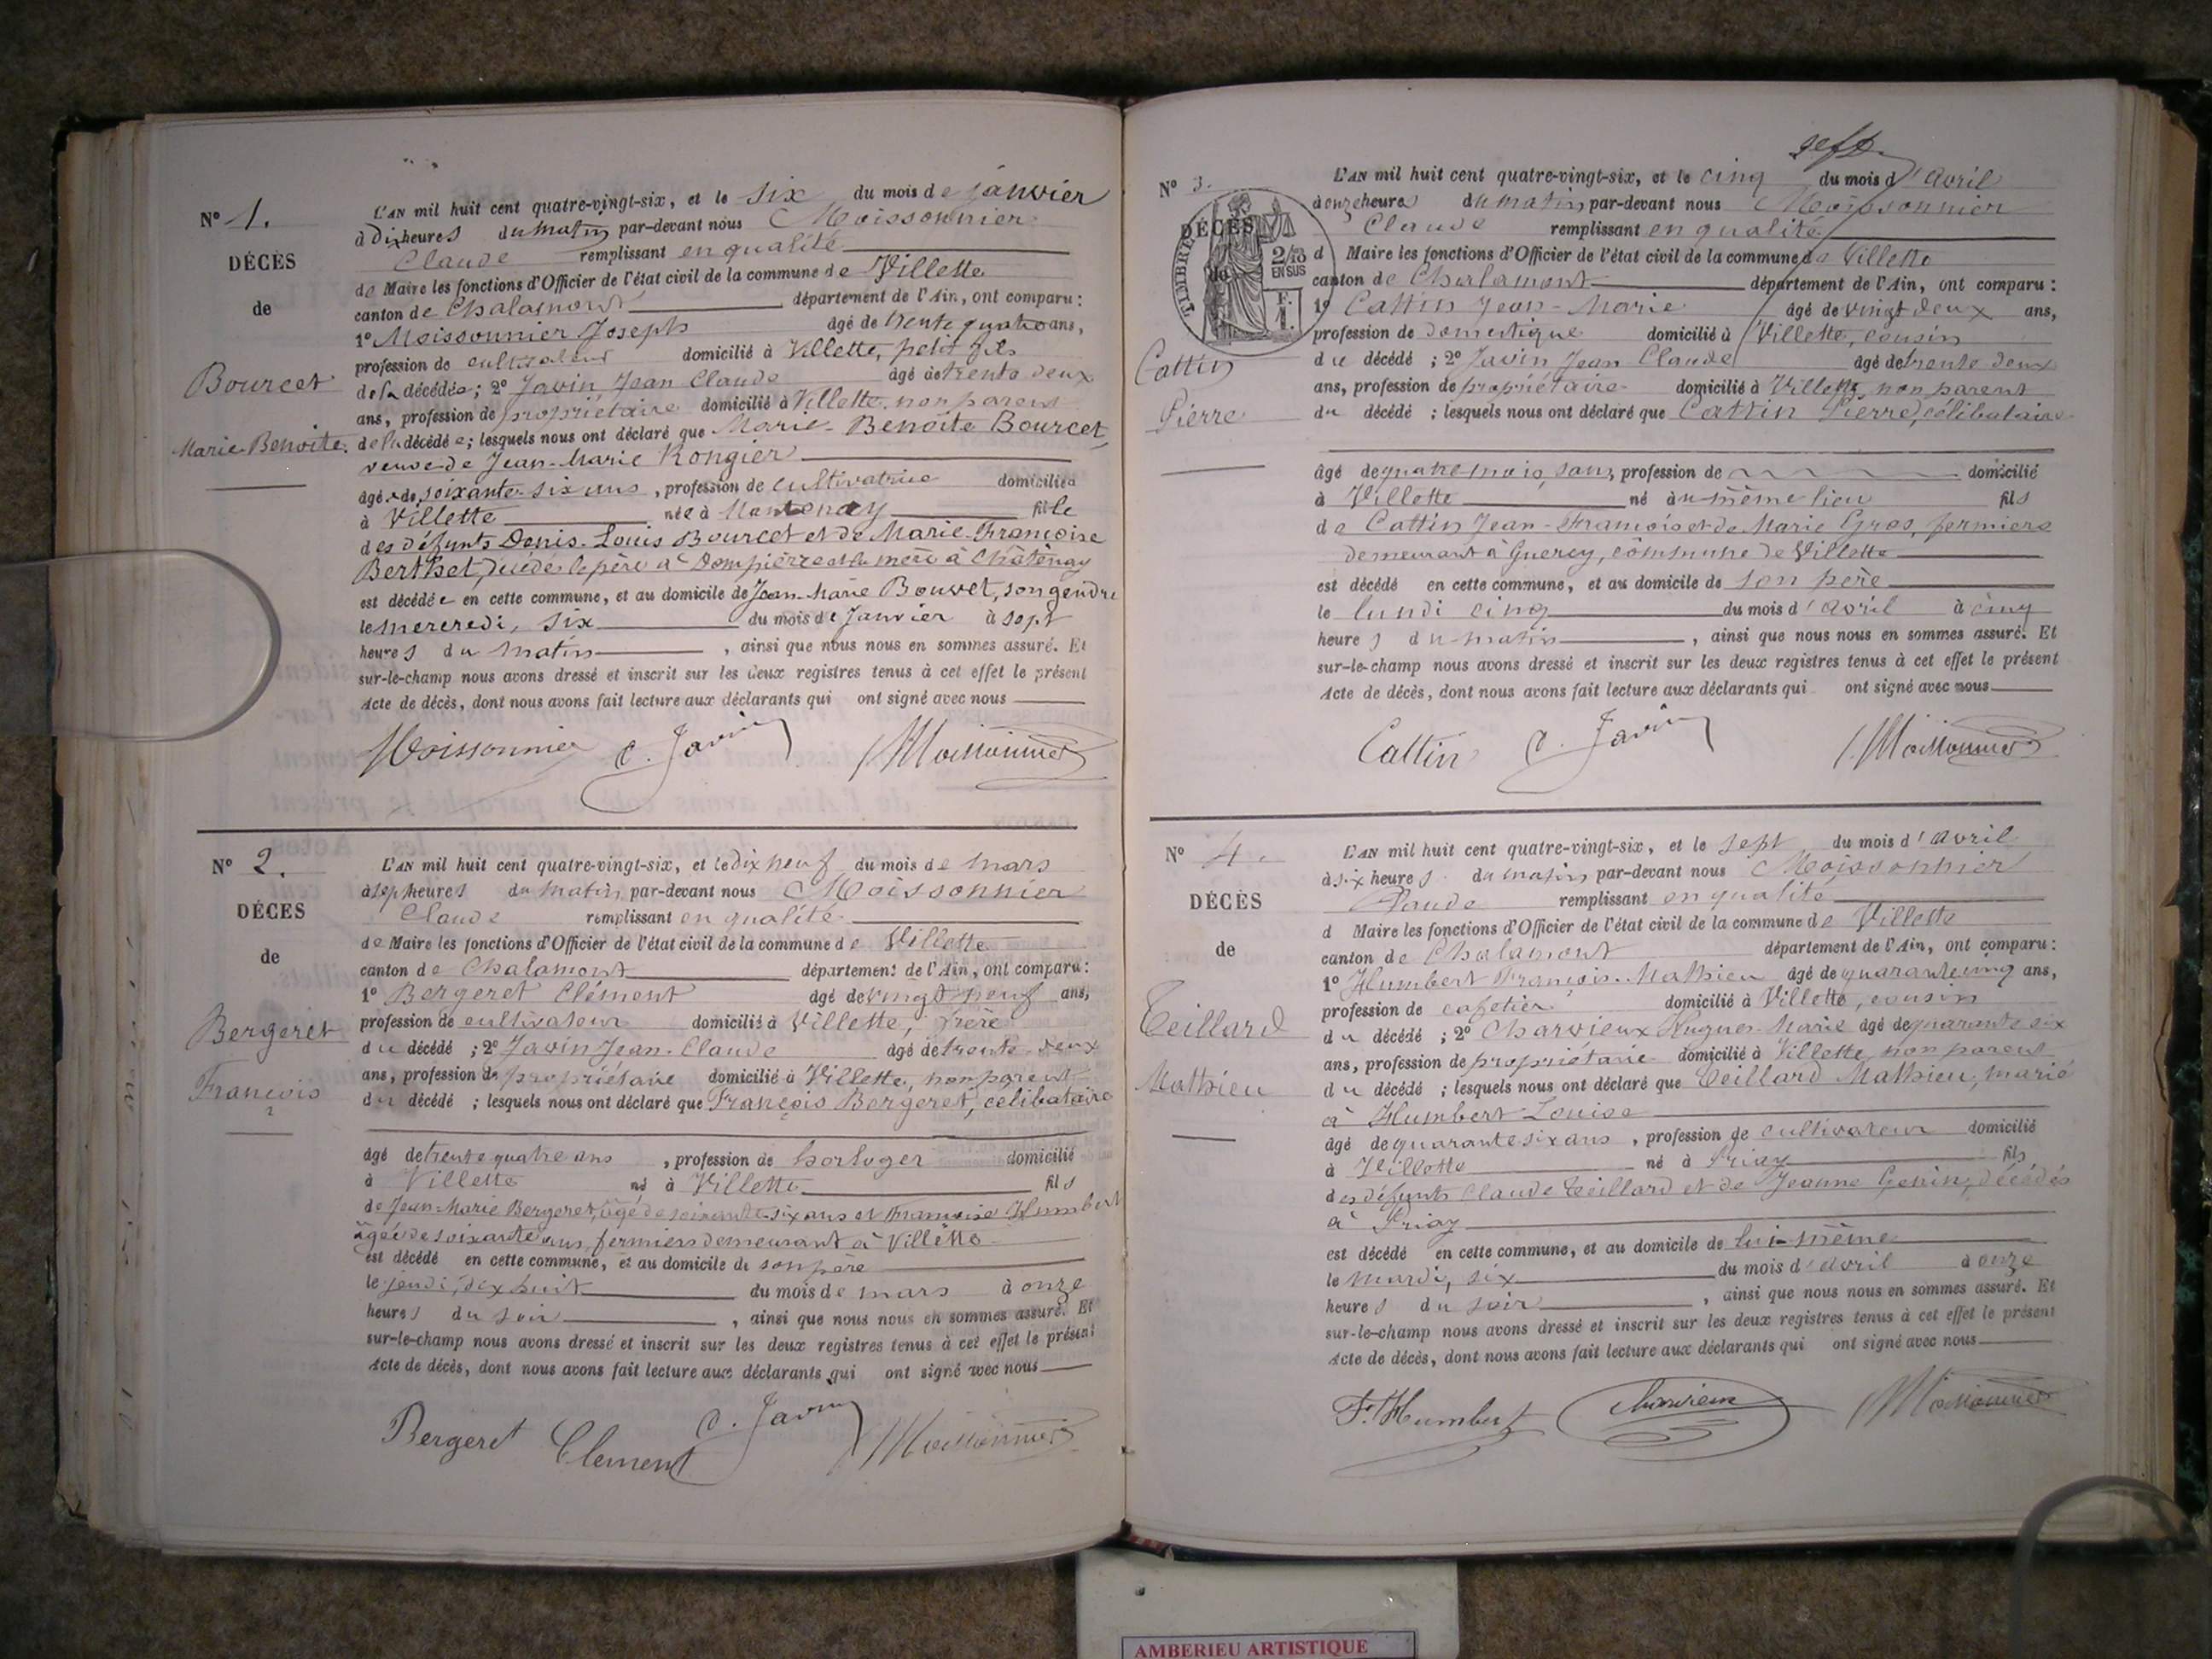 Nº 1.
DÉCÈS
de
Bourcet
Marie-Benoite.
L'AN mil huit cent quatre-vingt-six, et le six du mois de janvier
à Dix heures du matin par-devant nous Moissonnier
Claude remplissant en qualité
de Maire les fonctions d'Officier de l'état civil de la commune de Villette
canton de Chalamont département de l'Ain, ont comparu :
1º Moissonnier Joseph âgé de trente quatre ans,
profession de cultivateur domicilié à Villette, petit fils
de la décédée ; 2º Javin, Jean Claude âgé de trente deux
ans, profession de propriétaire domicilié à Villette, non parent
de la décédée ; lesquels nous ont déclaré que Marie-Benoite Bourcet,
veuve de Jean-Marie Rongier
âgée de soixante-six ans, profession de cultivatrice domiciliée
à Villette née à Montenay fille
des défunts Denis-Louis Bourcet et de Marie-Françoise
Berthet, décédés le père à Dompierre et la mère à Châtenay
est décédée en cette commune, et au domicile de Jean-Marie Bouvet, son gendre
le mercredi, six du mois de Janvier à sept
heures du matin , ainsi que nous nous en sommes assuré. Et
sur-le-champ nous avons dressé et inscrit sur les deux registres tenus à cet effet le présent
Acte de décès, dont nous avons fait lecture aux déclarants qui ont signé avec nous
Moissonnier C. Javin Moissonnier
Nº 2.
DÉCÈS
de
Bergeret
François
L'AN mil huit cent quatre-vingt-six, et le dix neuf du mois de mars
à sept heures du matin par-devant nous Moissonnier
Claude remplissant en qualité
de Maire les fonctions d'Officier de l'état civil de la commune de Villette
canton de Chalamont département de l'Ain, ont comparu :
1º Bergeret Clément âgé de vingt neuf ans,
profession de cultivateur domicilié à Villette, frère
du décédé ; 2º Javin Jean-Claude âgé de trente deux
ans, profession de propriétaire domicilié à Villette, non parent
du décédé ; lesquels nous ont déclaré que François Bergeret, célibataire
âgé de trente quatre ans , profession de horloger domicilié
à Villette né à Villette fils
de Jean-Marie Bergeret, âgé de soixante-six ans et Françoise Humbert
âgée de soixante ans, fermiers demeurant à Villette
est décédé en cette commune, et au domicile de son père
le jeudi, dix huit du mois de mars à onze
heures du soir , ainsi que nous nous en sommes assuré. Et
sur-le-champ nous avons dressé et inscrit sur les deux registres tenus à cet effet le présent
Acte de décès, dont nous avons fait lecture aux déclarants qui ont signé avec nous
Bergeret Clement C. Javin Moissonnier
Nº 3.
DÉCÈS
de
TIMBRE
2/10
EN SUS
F.
1.
Cattin
Pierre
L'AN mil huit cent quatre-vingt-six, et le cinq du mois d'avril
à onze heures du matin par-devant nous Moissonnier
Claude remplissant en qualité
d Maire les fonctions d'Officier de l'état civil de la commune de Villette
canton de Chalamont département de l'Ain, ont comparu :
1º Cattin Jean-Marie âgé de vingt deux ans,
profession de domestique domicilié à Villette, cousin
du décédé ; 2º Javin Jean Claude âgé de trente deux
ans, profession de propriétaire domicilié à Villette, non parent
du décédé ; lesquels nous ont déclaré que Cattin Pierre, célibataire
âgé de quatre mois, sans profession de domicilié
à Villette né au même lieu fils
de Cattin Jean-François et de Marie Gros, fermiers
demeurant à Guercy, commune de Villette
est décédé en cette commune, et au domicile de son père
le lundi cinq du mois d'avril à cinq
heures du matin , ainsi que nous nous en sommes assuré. Et
sur-le-champ nous avons dressé et inscrit sur les deux registres tenus à cet effet le présent
Acte de décès, dont nous avons fait lecture aux déclarants qui ont signé avec nous
Cattin C. Javin Moissonnier
Nº 4.
DÉCÈS
de
Teillard
Mathieu
L'AN mil huit cent quatre-vingt-six, et le sept du mois d'avril
à six heures du matin par-devant nous Moissonnier
Claude remplissant en qualité
d Maire les fonctions d'Officier de l'état civil de la commune de Villette
canton de Chalamont département de l'Ain, ont comparu :
1º Humbert François-Mathieu âgé de quarante cinq ans,
profession de cafetier domicilié à Villette, cousin
du décédé ; 2º Charvieux Hugues-Marie âgé de quarante six
ans, profession de propriétaire domicilié à Villette, non parent
du décédé ; lesquels nous ont déclaré que Teillard Mathieu, marié
à Humbert Louise
âgé de quarante six ans , profession de cultivateur domicilié
à Villette né à Priay fils
des défunts Claude Teillard et de Jeanne Genin, décédés
à Priay
est décédé en cette commune, et au domicile de lui-même
le mardi, six du mois d'avril à onze
heures du soir , ainsi que nous nous en sommes assuré. Et
sur-le-champ nous avons dressé et inscrit sur les deux registres tenus à cet effet le présent
Acte de décès, dont nous avons fait lecture aux déclarants qui ont signé avec nous
F. Humbert Charvieux Moissonnier
AMBERIEU ARTISTIQUE